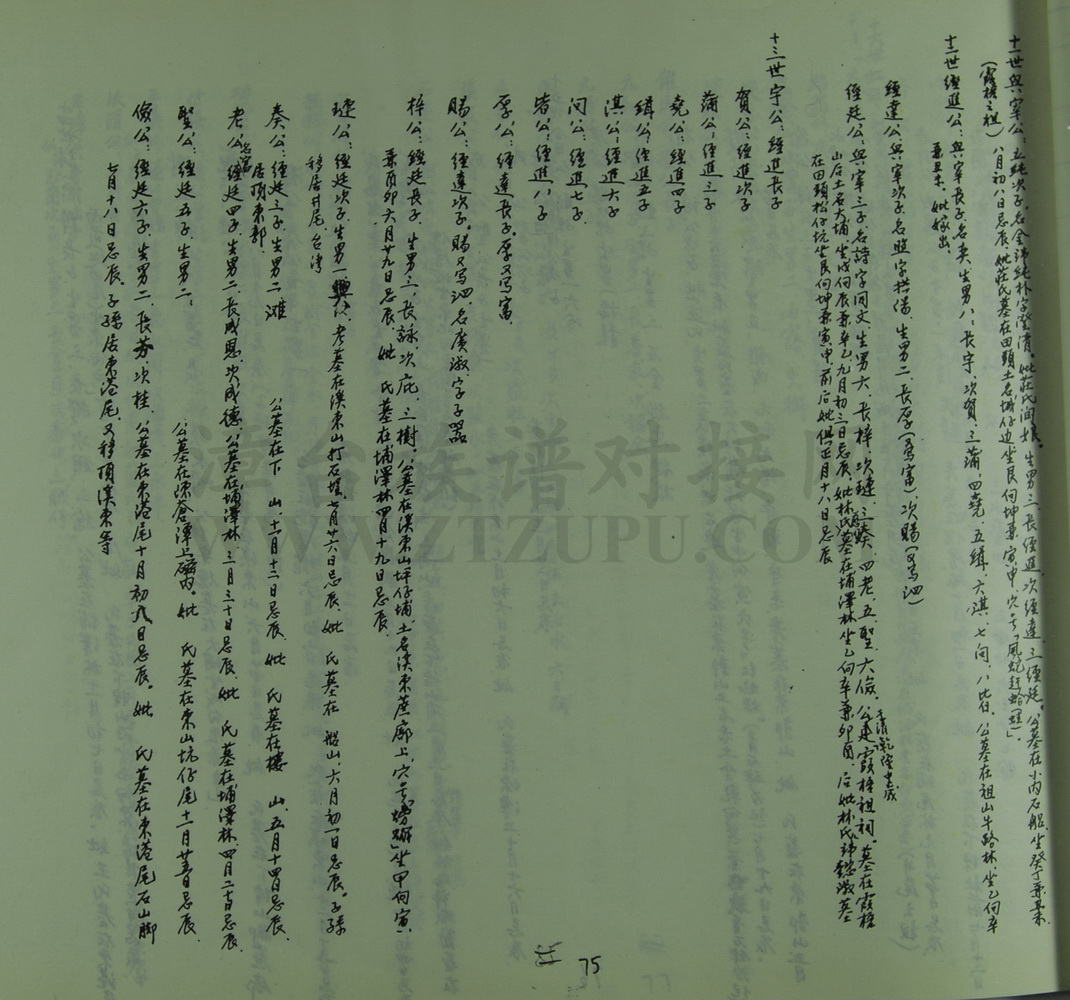 十一世與宰公:五純次子,名金諱純朴字澄清。妣莊氏 娘。生男三、長經進、次經達、三經廷。公墓在小内石船坐癸丁兼
(霞梧之祖)八月初八日忌辰、妣莊氏墓在田頭土名 仔边坐艮向坤兼寅申穴号「風蛇赶蛤蜢」。
十二世經進公:與宰長子,名奕,生男八:長宇、次賀、三蒲、四堯、五緝、六淇、七问、八 、公墓在祖山牛路林、坐乙向辛
兼 妣嫁出。
經達公:與宰次子,名照字 、生男二、長厚(又写富)、次賜(又写泗)
經廷公:與宰三子,名詩字同文,生男六、長梓、次璉、三奏、四老、五聖、六儉、公建霞梧祖祠。墓在霞梧
于清乾隆
山后土名大埔、坐戍向辰兼辛乙九月初三日忌辰、妣林氏墓在埔澤林坐乙向辛兼卯酉、后妣林氏諱 墓
在田頭松仔坑坐艮向坤兼寅申、前后妣俱正月十八日忌辰
十三世宇公:經進長子
賀公:經進次子
蒲公:經進三子
堯公:經進四子
緝公:經進五子
淇公:經進六子
问公:經進七子
公:經進八子
厚公:經達長子。厚又写富
賜公:經達次子。賜又写泗、名廣淑、字子器
梓公:經廷長子、生男三、長詠、次庇、三樹。公墓在溪東山坪仔埔、土名溪東蔗廍上、穴号 坐甲向寅、
兼酉卯六月廿九日忌辰、妣 氏墓在埔澤林四月十九日忌辰、
璉公:經廷次子、生男一興、老墓在溪東山打石 、七月廿六日忌辰、妣 氏墓在 船山、六月初一日忌辰。子孫
移居井尾、台湾
奏公:經廷三子、生男二灘 公墓在下 山、十二月十二日忌辰、妣 氏墓在楼 山、五月十四日忌辰、
居頂東郭
老公:經廷四子、生男二、長成恩、次成德、公墓在埔澤林、三月三十日忌辰、妣 氏墓在埔澤林、四月二 日忌辰
聖公:經廷五子、生男二: 公墓在漳蒼潭上 内。妣 氏墓在東山坑仔尾十一月廿五日忌辰、
儉公:經廷六子、生男二、長芳、次桂、公墓在東港尾十月初九日忌辰。妣 氏墓在東港尾石山脚
七月十八日忌辰、子孫居東港尾、又移頂溪東等
75
漳台族谱对接网
WWW.ZTZUPU.COM